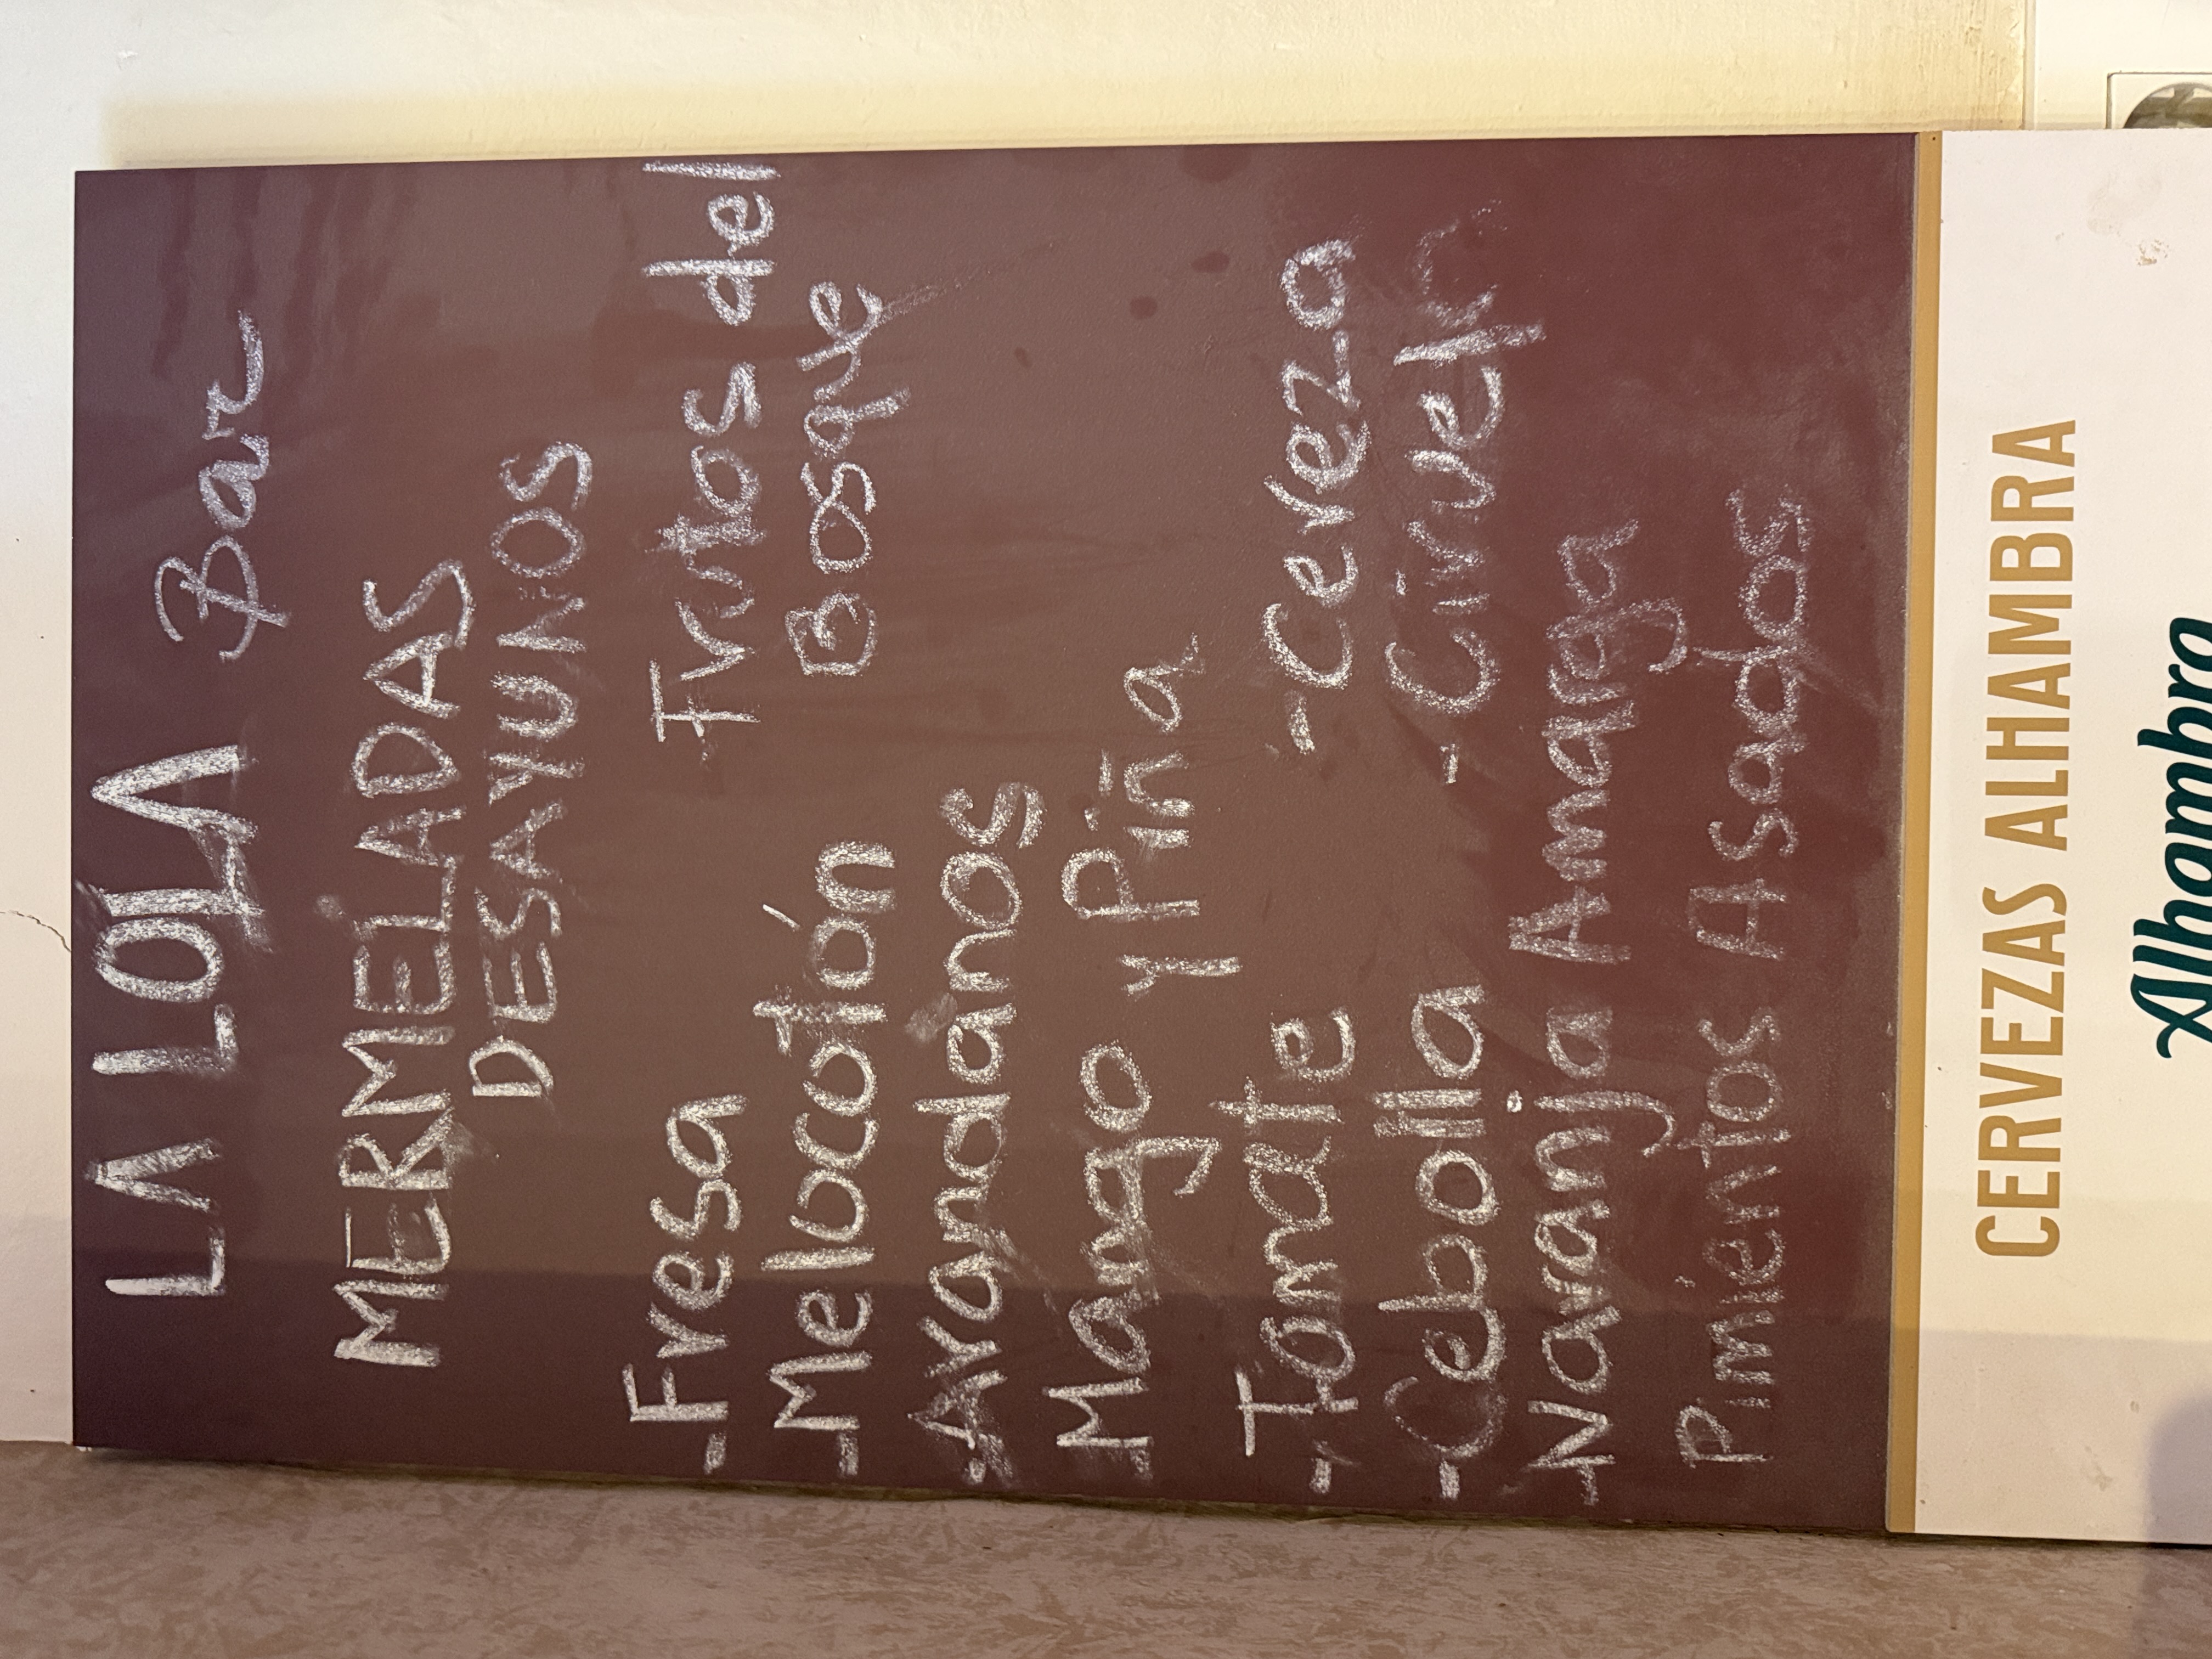 LA LOLA Bar
MERMELADAS
DESAYUNOS
-Fresa
-Frutos del
Bosque
-Melocotón
-Arandanos
-Mango y Piña
-Tomate
-Cereza
-Cebolla
-Naranja Amarga
Pimientos Asados
CERVEZAS ALHAMBRA
Alhambra